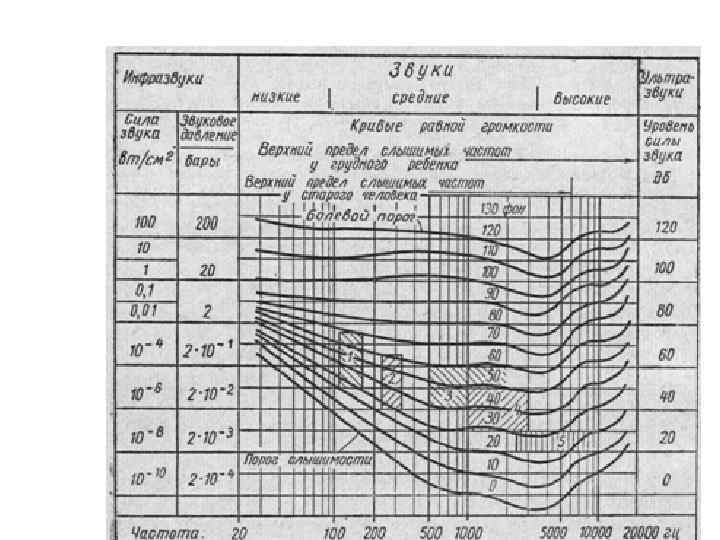 Инфразвуки
Звуки
низкие
средние
высокие
Ультра-
звуки
Сила
звука
Вт/см²
Звуковое
давление
Бары
Кривые равной громкости
Верхний предел слышимых частот
у грудного ребенка
Верхний предел слышимых частот
у старого человека
Уровень
силы
звука
Дб
Болевой порог
130 фон
120
110
100
90
80
70
60
50
40
30
20
10
0
1
2
3
4
5
100 200 120
10
1 20 100
0,1
0,01 2 80
10⁻⁴ 2·10⁻¹ 60
10⁻⁶ 2·10⁻² 40
10⁻⁸ 2·10⁻³ 20
10⁻¹⁰ 2·10⁻⁴ 0
Порог слышимости
Частота: 20 100 200 500 1000 5000 10000 20000 гц